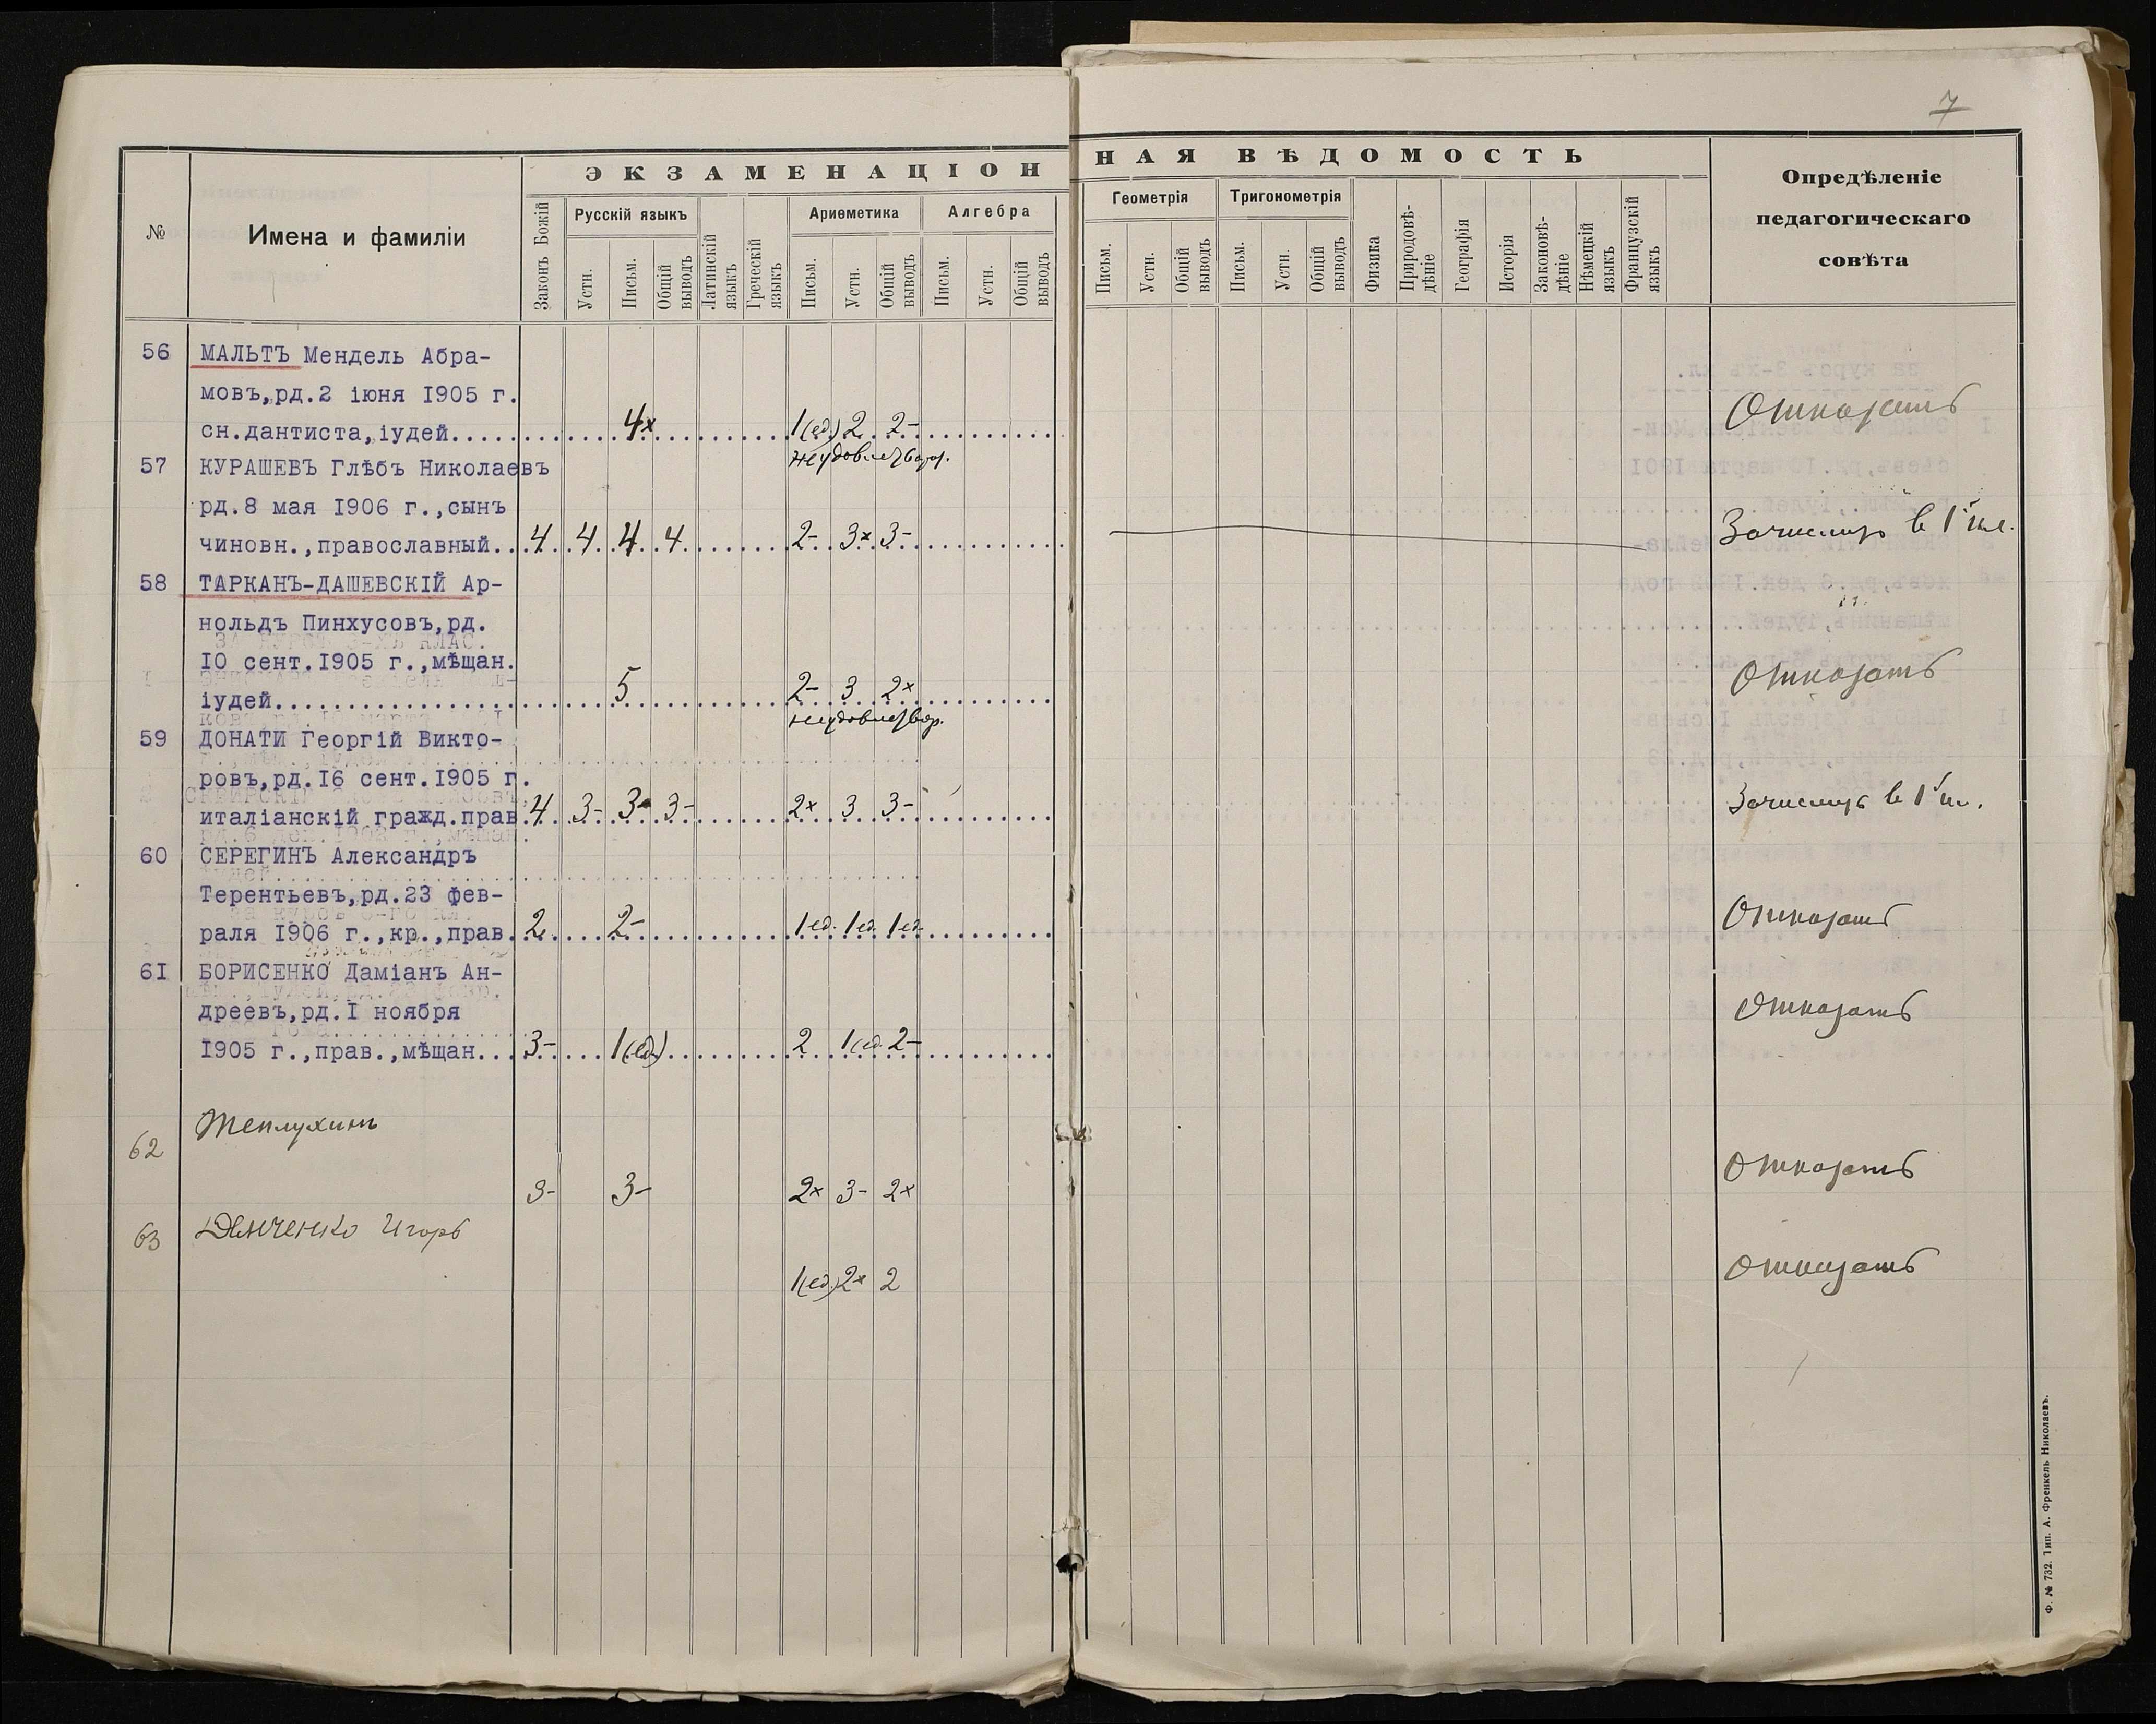 7
ЭКЗАМЕНАЦІОННАЯ ВѢДОМОСТЬ
№
Имена и фамиліи
Законъ Божій
Русскій языкъ
Устн.
Письм.
Общій выводъ
Латинскій языкъ
Греческій языкъ
Ариѳметика
Письм.
Устн.
Общій выводъ
Алгебра
Письм.
Устн.
Общій выводъ
Геометрія
Письм.
Устн.
Общій выводъ
Тригонометрія
Письм.
Устн.
Общій выводъ
Физика
Природовѣ-
дѣніе
Географія
Исторія
Законовѣ-
дѣніе
Нѣмецкій языкъ
Французскій языкъ
Опредѣленіе
педагогическаго
совѣта
56 МАЛЬТЪ Мендель Абра-
мовъ,рд.2 іюня 1905 г.
сн.дантиста,іудей 4х 1(ед.) 2 2- Отказать
неудовлетвор.
57 КУРАШЕВЪ Глѣбъ Николаевъ
рд.8 мая 1906 г.,сынъ
чиновн.,православный 4 4 4 4 2- 3х 3- Зачислить в 1й кл.
58 ТАРКАНЪ-ДАШЕВСКІЙ Ар-
нольдъ Пинхусовъ,рд.
10 сент.1905 г.,мѣщан.
іудей 5 2- 3 2х Отказать
неудовлетвор.
59 ДОНАТИ Георгій Викто-
ровъ,рд.16 сент.1905 г.
италіанскій гражд.прав. 4 3- 3- 3- 2х 3 3- Зачислить в 1й кл.
60 СЕРЕГИНЪ Александръ
Терентьевъ,рд.23 фев-
раля 1906 г.,кр.,прав. 2 2- 1 ед. 1 ед. 1 ед. Отказать
61 БОРИСЕНКО Даміанъ Ан-
дреевъ,рд.1 ноября
1905 г.,прав.,мѣщан. 3- 1(ед.) 2 1(ед. 2- Отказать
62 Теплухинъ
3- 3- 2х 3- 2х Отказать
63 Игорь
1(ед.) 2х 2 Отказать
Ф. № 732. Тип. А. Френкель Николаевъ.